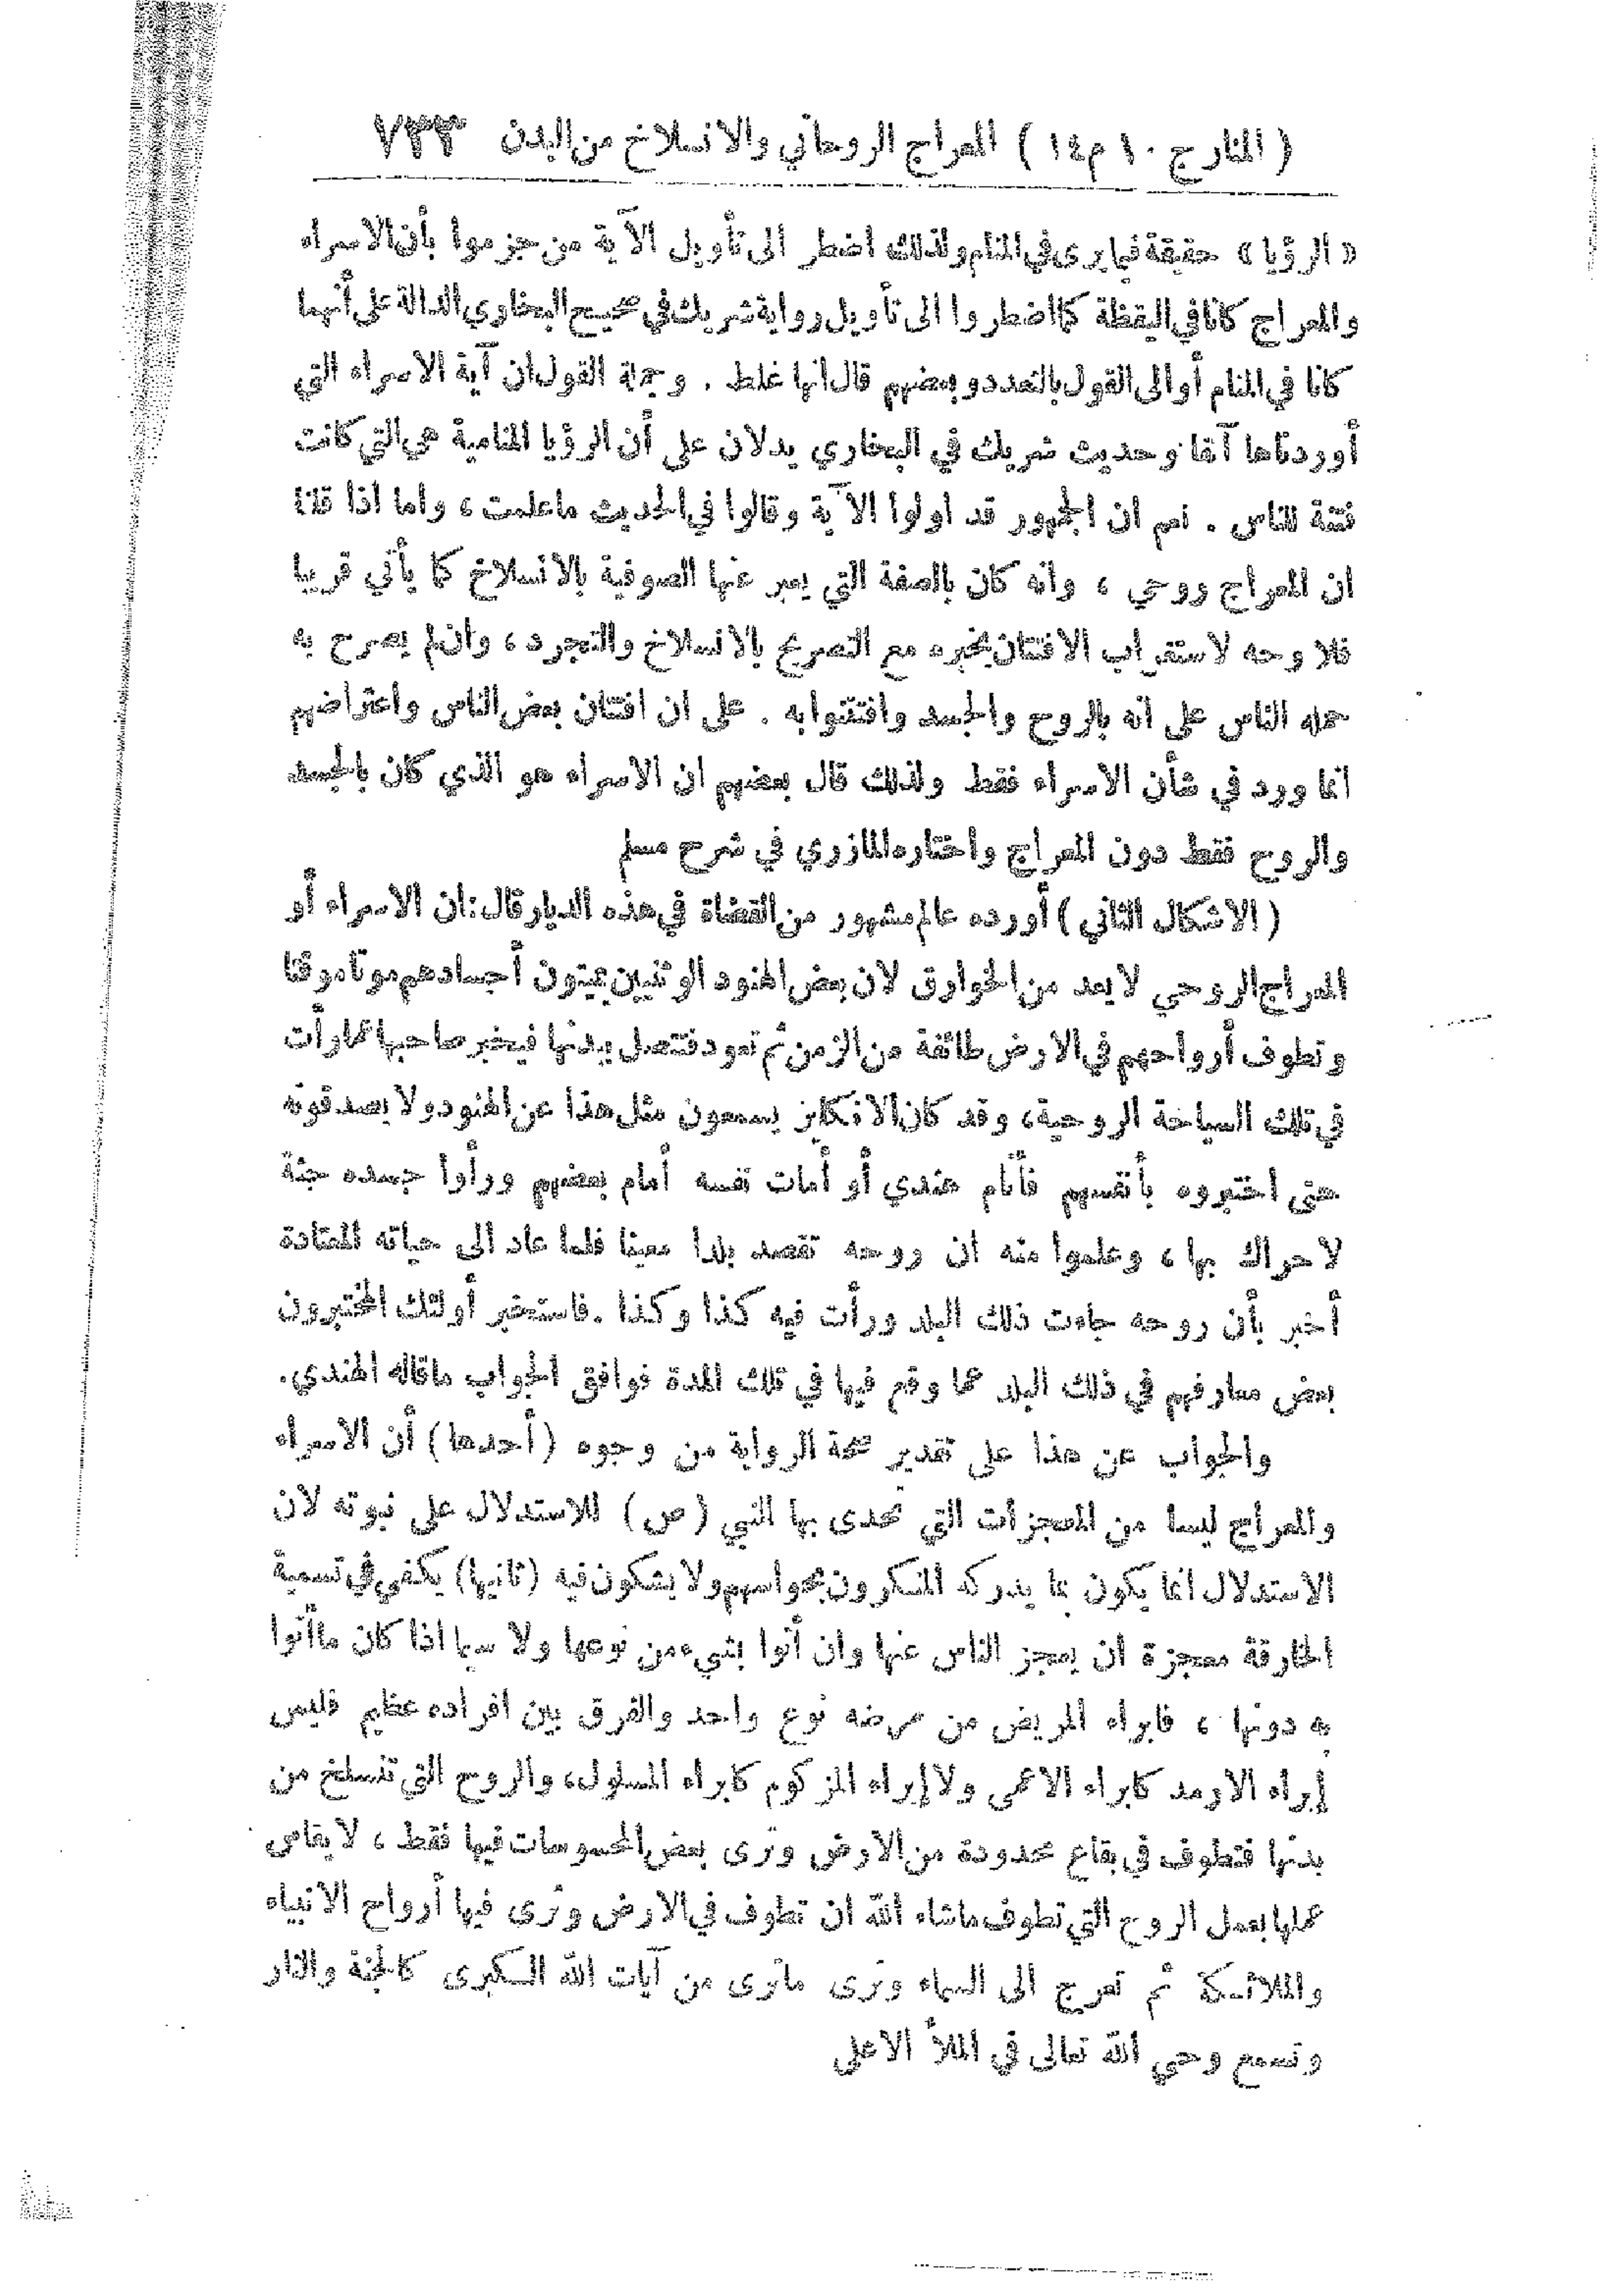 ( المنار ج ١٠ م ١٤ ) المعراج الروحاني والانسلاخ من البدن ٧٣٣
« الرؤيا » حقيقة فيما يرى في المنام ولذلك اضطر الى تأويل الآية من جزموا بأن الاسراء
والمعراج كانا في اليقظة كما اضطروا الى تأويل رواية شريك في صحيح البخاري الدالة على أنهما
كانا في المنام أو الى القول بالتعدد وبعضهم قال انها غلط . وجملة القول ان آية الاسراء التي
أوردناها آنفا وحديث شريك في البخاري يدلان على أن الرؤيا المنامية هي التي كانت
فتنة للناس . نعم ان الجمهور قد اولوا الآية وقالوا في الحديث ما علمت ، واما اذا قلنا
ان المعراج روحي ، وانه كان بالصفة التي يعبر عنها الصوفية بالانسلاخ كما يأتي قريبا
فلا وجه لاستغراب الافتتان بخبره مع التصريح بالانسلاخ والتجرد ، وان لم يصرح به
حمله الناس على انه بالروح والجسد وافتتنوا به . على ان افتتان بعض الناس واعتراضهم
انما ورد في شأن الاسراء فقط ولذلك قال بعضهم ان الاسراء هو الذي كان بالجسد
والروح فقط دون المعراج واختاره المازري في شرح مسلم
( الاشكال الثاني ) أورده عالم مشهور من القضاة في هذه الديار قال : ان الاسراء أو
المعراج الروحي لا يعد من الخوارق لان بعض الهنود الوثنيين يميتون أجسادهم موتا موقتا
وتطوف أرواحهم في الارض طائفة من الزمن ثم تعود فتتصل ببدنها فيخبر صاحبها عما رأت
في تلك السياحة الروحية ، وقد كان الانكليز يسمعون مثل هذا عن الهنود ولا يصدقونه
حتى اختبروه بأنفسهم فأنام هندي أو أمات نفسه أمام بعضهم ورأوا جسده جثة
لا حراك بها ، وعلموا منه ان روحه تقصد بلدا معينا فلما عاد الى حياته المعتادة
أخبر بأن روحه جاءت ذلك البلد ورأت فيه كذا وكذا . فاستخبر أولئك المختبرون
بعض معارفهم في ذلك البلد عما وقع فيها في تلك المدة فوافق الجواب ما قاله الهندي .
والجواب عن هذا على تقدير صحة الرواية من وجوه ( أحدها ) أن الاسراء
والمعراج ليسا من المعجزات التي تحدى بها النبي ( ص ) للاستدلال على نبوته لان
الاستدلال انما يكون بما يدركه المنكرون بحواسهم ولا يشكون فيه ( ثانيها ) يكفي في تسمية
الخارقة معجزة ان يعجز الناس عنها وان أتوا بشيء من نوعها ولا سيما اذا كان ما أتوا
به دونها ، فابراء المريض من مرضه نوع واحد والفرق بين افراده عظيم فليس
إبراء الارمد كابراء الاعمى ولا إبراء المزكوم كابراء المسلول ، والروح التي تنسلخ من
بدنها فتطوف في بقاع محدودة من الارض وترى بعض المحسوسات فيها فقط ، لا يقاس
عملها بعمل الروح التي تطوف ما شاء الله ان تطوف في الارض وترى فيها أرواح الانبياء
والملائكة ثم تعرج الى السماء وترى ما ترى من آيات الله الكبرى كالجنة والنار
وتسمع وحي الله تعالى في الملأ الاعلى